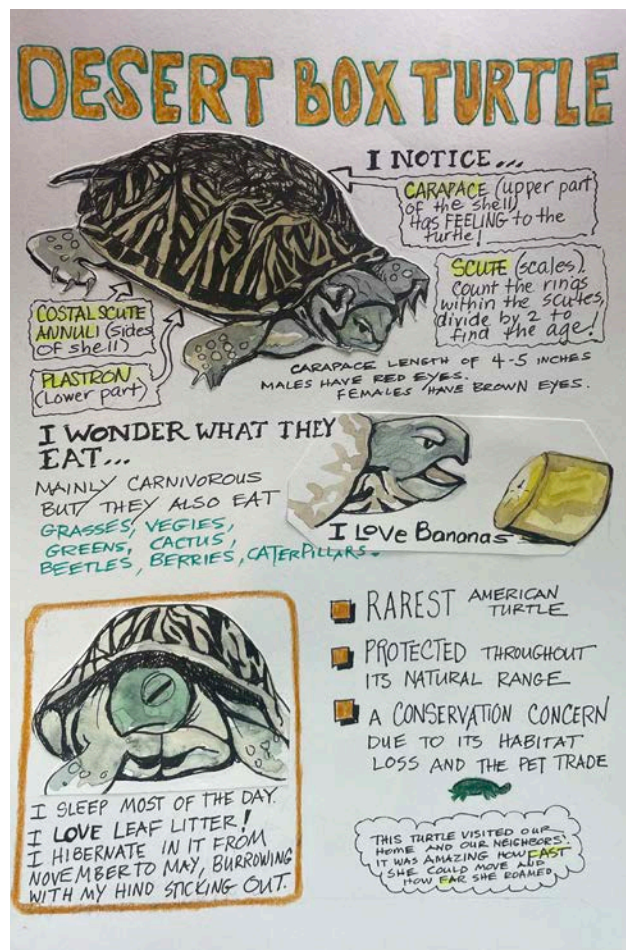 DESERT BOX TURTLE
I NOTICE...
CARAPACE (upper part
of the shell)
Has FEELING to the
turtle!
SCUTE (scales).
count the rings
within the scutes,
divide by 2 to
find the age!
COSTAL SCUTE
ANNULI (sides
of shell)
PLASTRON
(Lower part)
CARAPACE LENGTH OF 4-5 INCHES
MALES HAVE RED EYES.
FEMALES HAVE BROWN EYES.
I WONDER WHAT THEY
EAT...
MAINLY CARNIVOROUS
BUT THEY ALSO EAT
GRASSES, VEGIES,
GREENS, CACTUS,
BEETLES, BERRIES, CATERPILLARS.
I LOVE Bananas
RAREST AMERICAN
TURTLE
PROTECTED THROUGHOUT
ITS NATURAL RANGE
A CONSERVATION CONCERN
DUE TO ITS HABITAT
LOSS AND THE PET TRADE
I SLEEP MOST OF THE DAY.
I LOVE LEAF LITTER!
I HIBERNATE IN IT FROM
NOVEMBER TO MAY, BURROWING
WITH MY HIND STICKING OUT.
THIS TURTLE VISITED OUR
HOME AND OUR NEIGHBORS!
IT WAS AMAZING HOW FAST
SHE COULD MOVE AND
HOW FAR SHE ROAMED